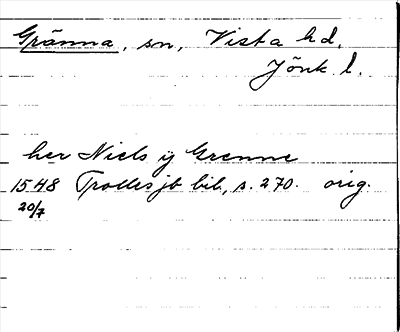 Gränna, sn, Vista hd,
Jönk. l.
her Niels ij Grenne
1548 Trolles jb bil, s. 270. orig.
20/7